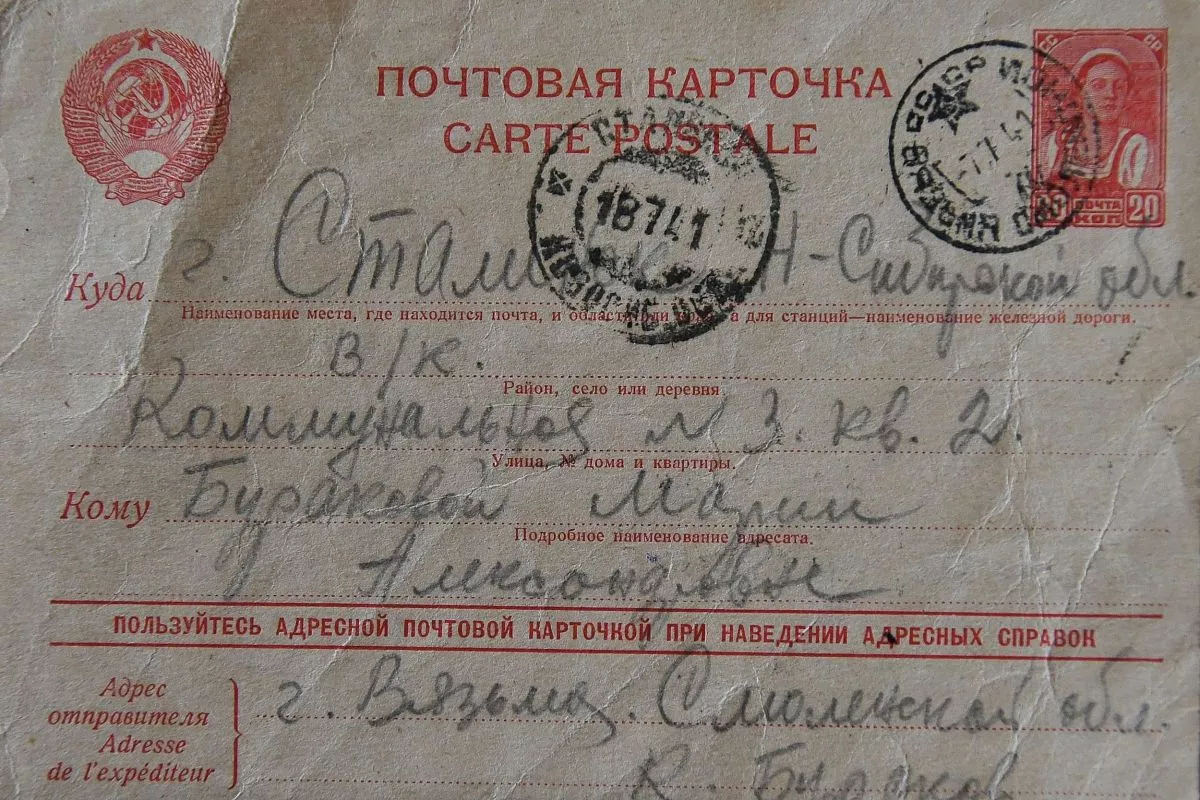 ПОЧТОВАЯ КАРТОЧКА
CARTE POSTALE
СССР
ПОЧТА
20 КОП 20
18741
Куда г. Сталинск Н-Сибирской обл.
Наименование места, где находится почта, и область или края, а для станций—наименование железной дороги.
в/к.
Район, село или деревня.
Коммунальная № 3. кв. 2.
Улица, № дома и квартиры.
Кому Бураковой Марии
Подробное наименование адресата.
Александровне
ПОЛЬЗУЙТЕСЬ АДРЕСНОЙ ПОЧТОВОЙ КАРТОЧКОЙ ПРИ НАВЕДЕНИИ АДРЕСНЫХ СПРАВОК
Адрес
отправителя
Adresse
de l'expéditeur
г. Вязьма. Смоленской обл.
К. Бураков